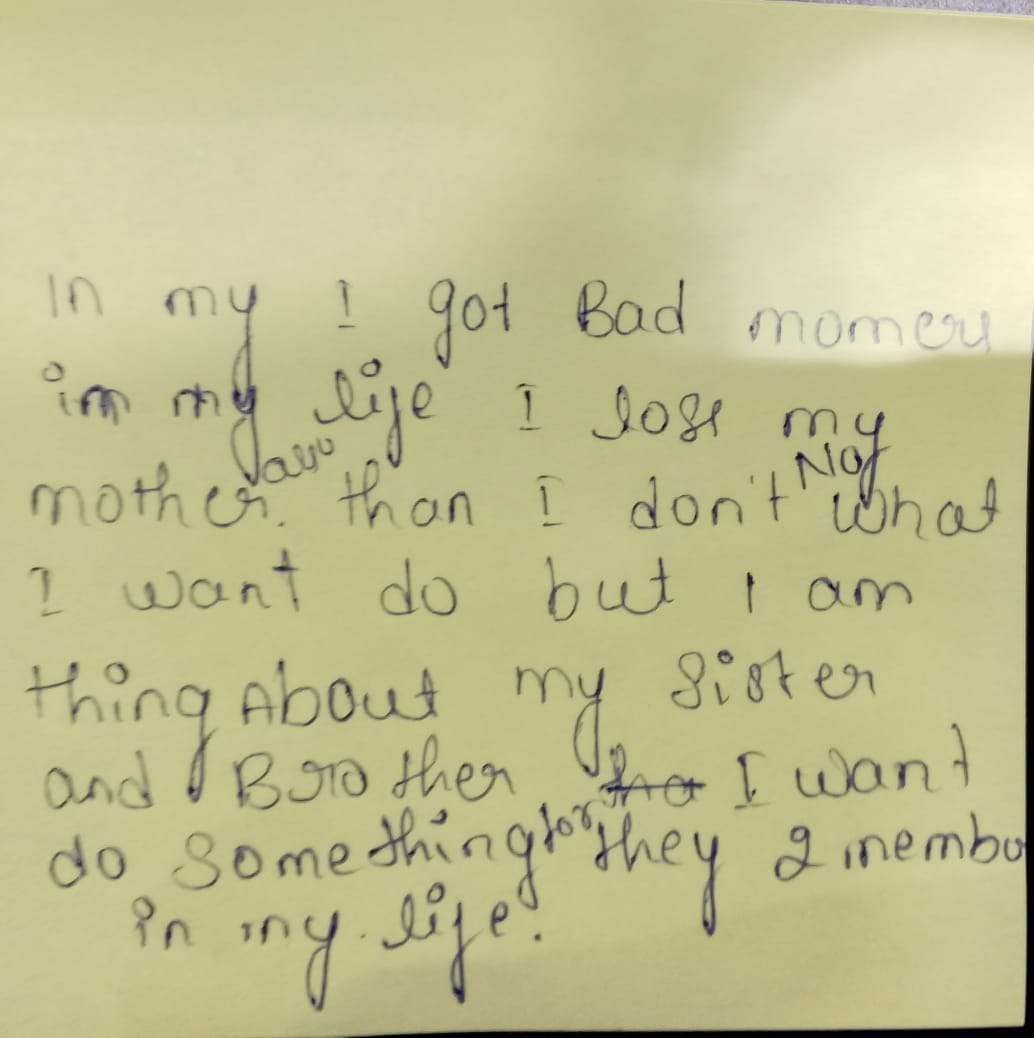 In my I got Bad momeru
im my life I lose my
mother. than I don't Not what
I want do but I am
thing About my Sister
and Brother I want
do Something for they 2 membu
in my life.